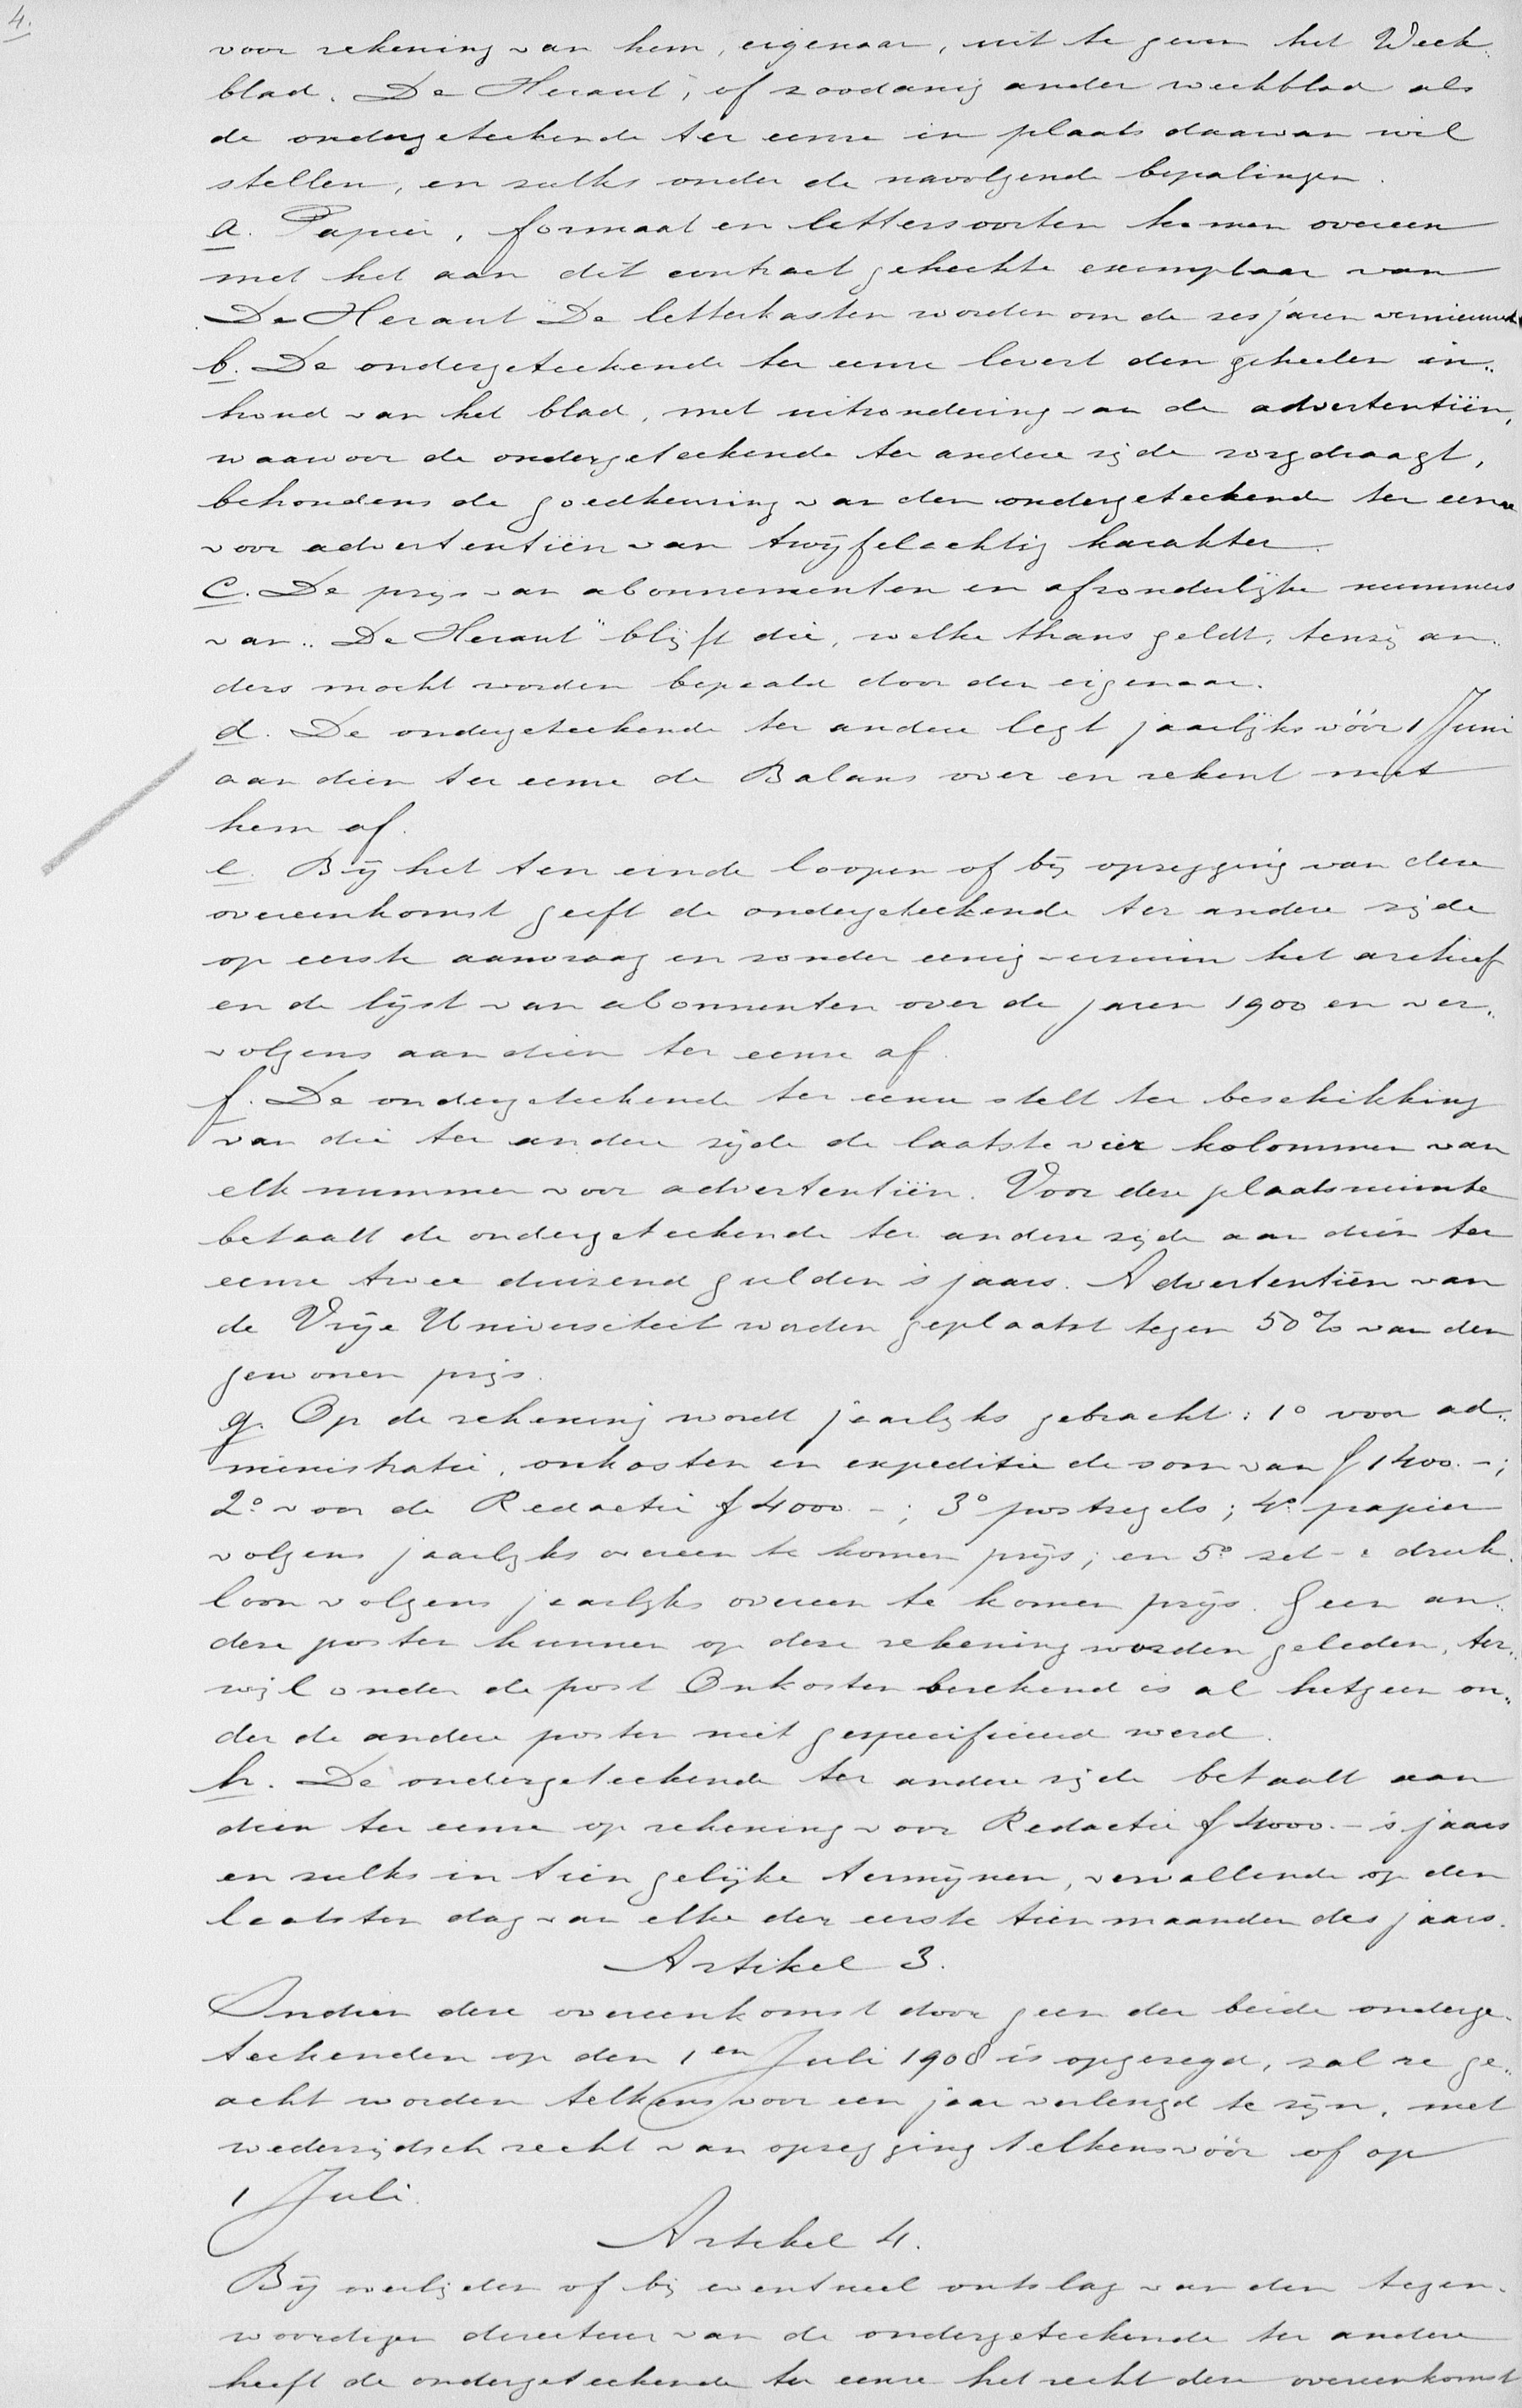 4.
voor rekening van hem, eigenaar, uit te geven het Week-
blad „De Heraut”, of zoodanig ander weekblad als
de ondergeteekende ter eenre in plaats daarvan wil
stellen, en zulks onder de navolgende bepalingen.
a. Papier, formaat en lettersoorten komen overeen
met het aan dit contract gehechte exemplaar van
„De Heraut” De letterkasten worden om de zes jaren vernieuwd
b. De ondergeteekende ter eenre levert den geheelen in-
houd van het blad, met uitzondering van de advertentiën,
waarvoor de ondergeteekende ter andere zijde zorgdraagt,
behoudens de goedkeuring van den ondergeteekende ter eenre
voor advertentiën van twijfelachtig karakter.
c. De prijs van abonnementen en afzonderlijke nummers
van „De Heraut” blijft die, welke thans geldt, tenzij an-
ders mocht worden bepaald door den eigenaar.
d. De ondergeteekende ter andere legt jaarlijks vóór 1 Juni
aan dien ter eenre de Balans over en rekent met
hem af.
e. Bij het ten einde loopen of bij opzegging van deze
overeenkomst geeft de ondergeteekende ter andere zijde
op eerste aanvraag en zonder eenig verzuim het archief
en de lijst van abonnenten over de jaren 1900 en ver-
volgens aan dien ter eenre af.
f. De ondergeteekende ter eenre stelt ter beschikking
van die ter andere zijde de laatste vier kolommen van
elk nummer voor advertentiën. Voor deze plaatsruimte
betaalt de ondergeteekende ter andere zijde aan dien ter
eenre twee duizend gulden 's jaars. Advertentiën van
de Vrije Universiteit worden geplaatst tegen 50% van den
gewonen prijs.
g. Op de rekening wordt jaarlijks gebracht: 1° voor ad-
ministratie, onkosten en expeditie de som van f 1400.-;
2° voor de Redactie f 4000.-; 3° postzegels; 4° papier
volgens jaarlijks overeen te komen prijs; en 5° zet- & druk-
loon volgens jaarlijks overeen te komen prijs. Geen an-
dere posten kunnen op deze rekening worden geleden, ter-
wijl onder de post Onkosten berekend is al hetgeen on-
der de andere posten niet gespecificeerd werd.
h. De ondergeteekende ter andere zijde betaalt aan
dien ter eenre op rekening voor Redactie f 4000.- 's jaars
en zulks in tien gelijke termijnen, vervallende op den
laatsten dag van elke der eerste tien maanden des jaars.
Artikel 3.
Indien deze overeenkomst door geen der beide onderge-
teekenden op den 1en Juli 1908 is opgezegd, zal ze ge-
acht worden telkens voor een jaar verlengd te zijn, met
wederzijdsch recht van opzegging telkens vóór of op
1 Juli.
Artikel 4.
Bij overlijden of bij eventueel ontslag van den tegen-
woordigen directeur van de ondergeteekende ter andere
heeft de ondergeteekende ter eenre het recht deze overeenkomst